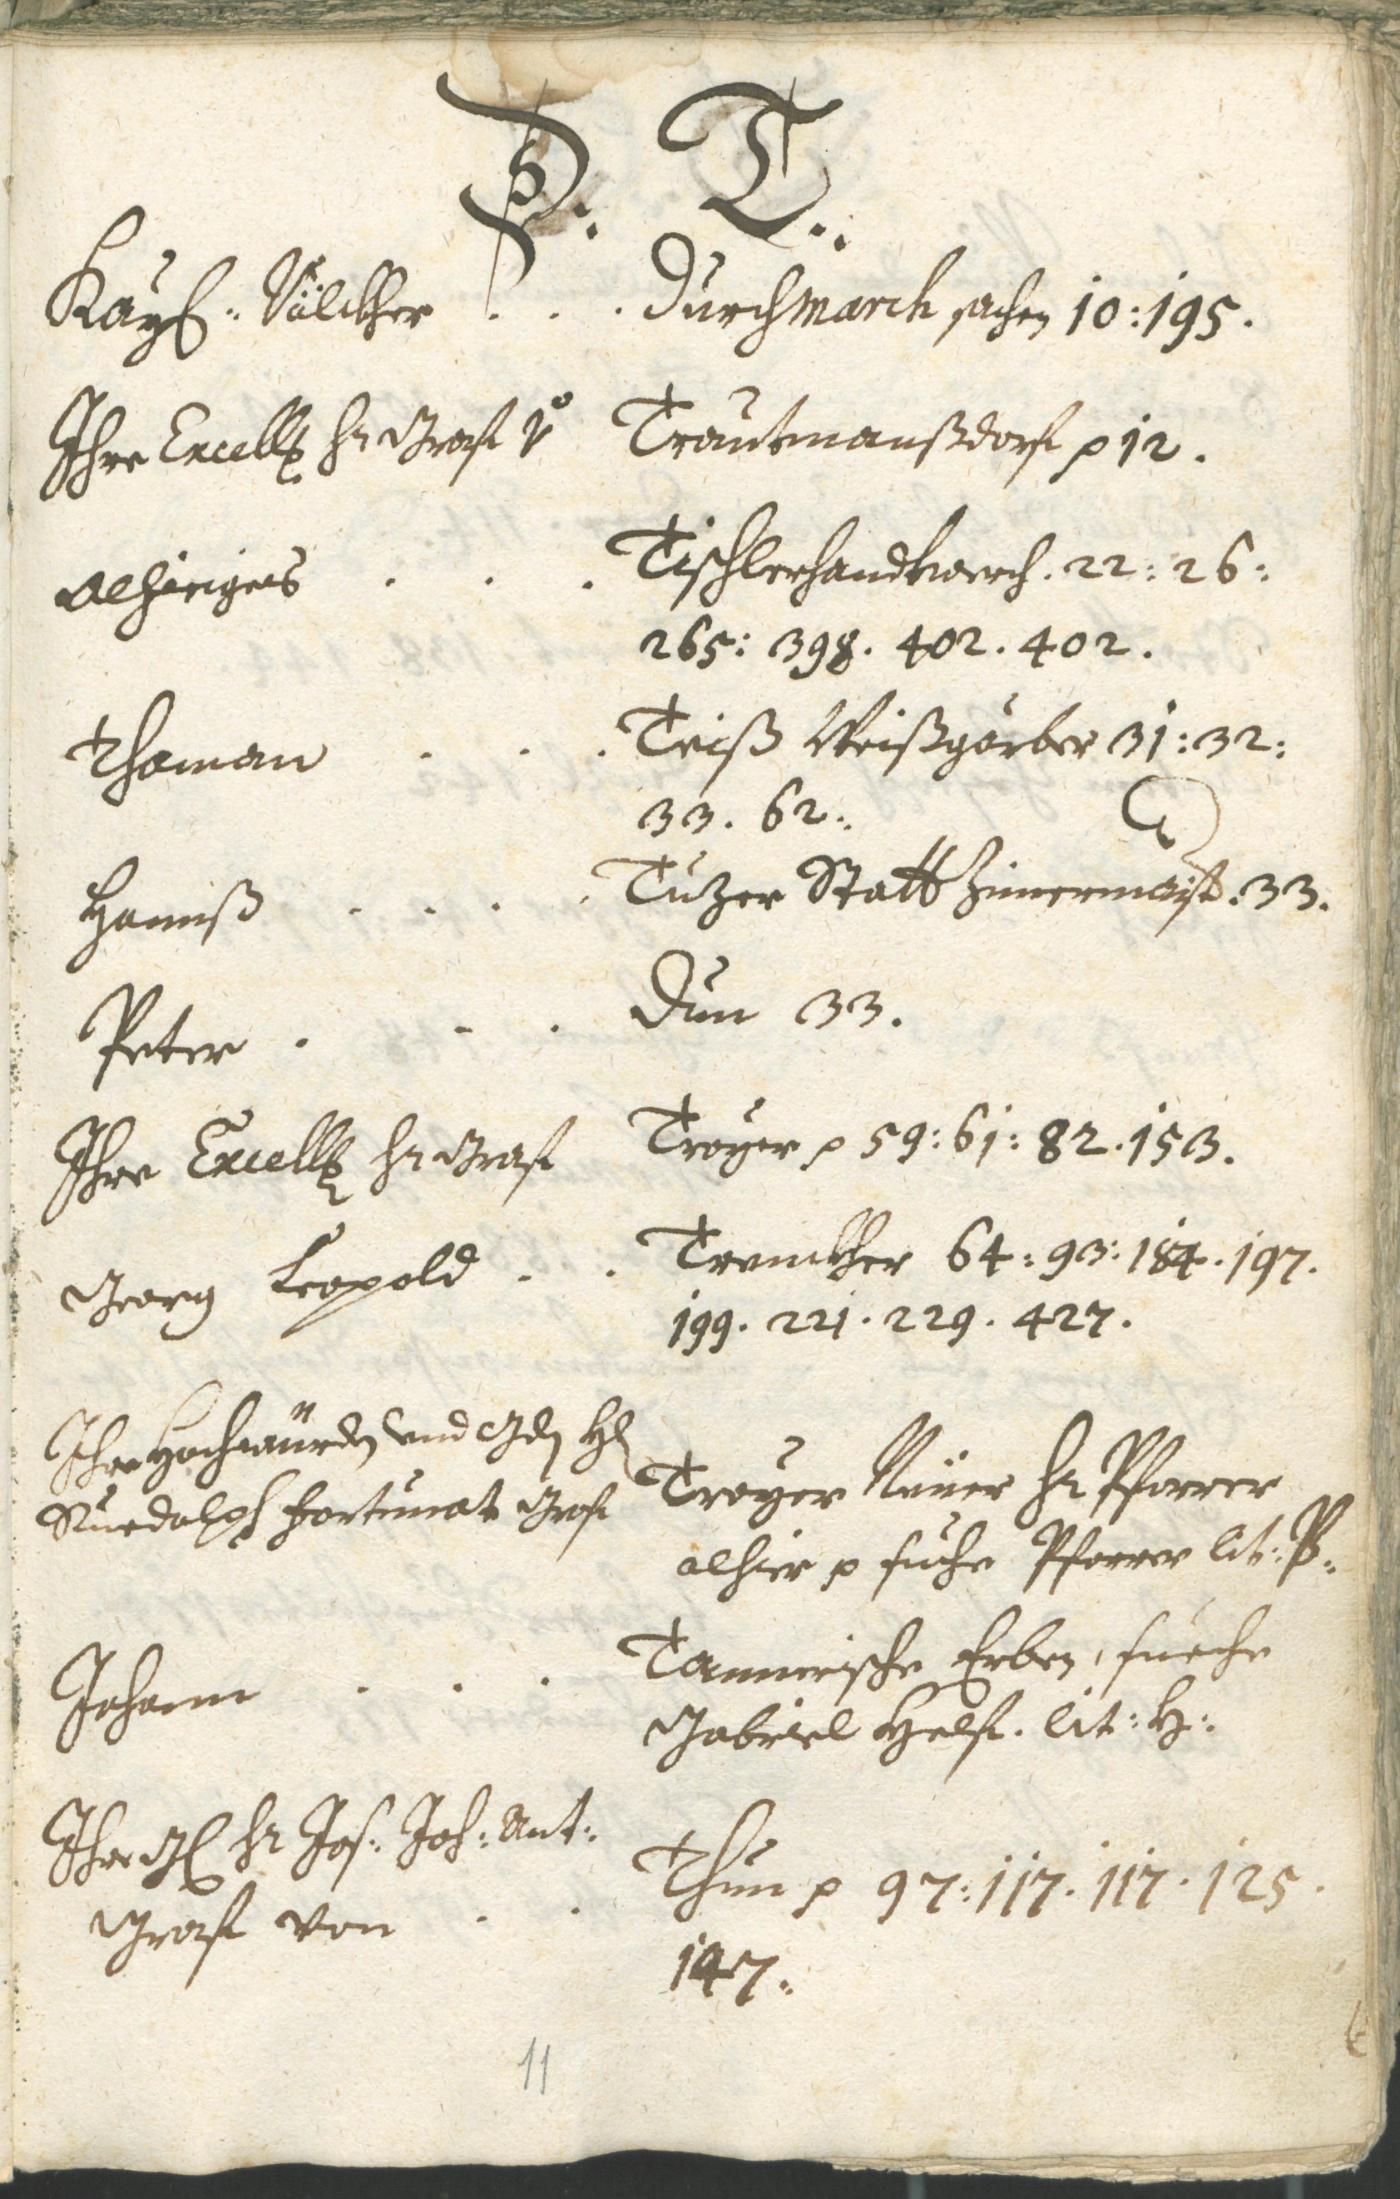 D: T:
Kayß: Völckher . . . Durchmarch sachen 10: 195.
Ihre Excellz hr Graff v Trautmanßdorff p 12.
alhieiges . . . Tischlerhandtwerch. 22: 26:
265: 398. 402. 402.
Thoman . . . Teiß Weißgärber 31: 32:
33. 62:
Hannß . . . . Tuzer Statt Zimermaist. 33.
Peter . . . Dun 33.
Ihre Excellz hr Graff Troyer p 59: 61: 82. 153.
Georg Leopold . . Trenckher 64: 93: 184. 197.
199. 221. 229. 427.
Ihre Hochwürden und Gdn
Ruedolph Fortunat Graff Troyer Neuer hr Pfarrer
alhier p suche Pfarrer lit: P:
Johann . . . Tannerische Erben, sueche
Gabriel Helff. lit: H:
Ihre hr Jos: Joh: Ant:
Graff von . . Thun p 97: 117. 117. 125.
147.
11